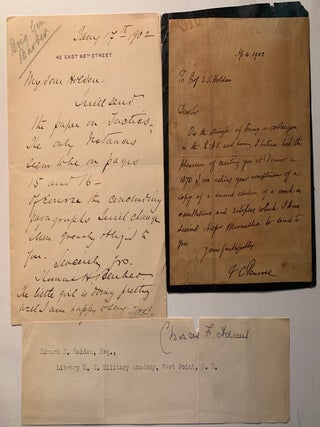 Brig Gen
Barber
Jany 17th 1902
45 EAST 68TH STREET.
My dear Holden.
I will send
the paper on Tactics.
The only distances
given are on pages
15 and 16 -
Of course the concluding
paragraphs I will change
I am greatly obliged to
you.
Sincerely yrs.
Barber
The little girl is doing pretty
well I am happy to say.
4. 1902
To Prof. E. S. Holden
Dear Sir
On the strength of being a colleague
in the RAS and having I believe had the
pleasure of meeting you at Denver in
1878 I am asking your acceptance of a
copy of a second edition of a work on
occultations and eclipses which I have
desired Messrs Macmillan to send to
you
Yours faithfully
F C Penrose
Charles F. Adams
Edward S. Holden, Esq.,
Library U. S. Military Academy, West Point, N. Y.